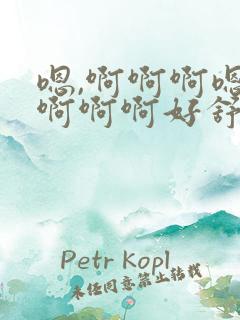 嗯,啊啊啊嗯
啊啊啊好舒
Petr Kopl
未经同意禁止转载